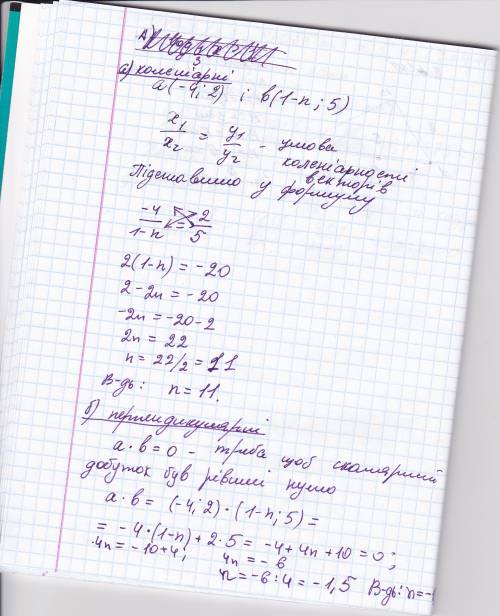 а) коленіарні
a(-4; 2) і b(1-n; 5)
x₁/x₂ = y₁/y₂ - умова
коленіарности
векторів
Підставимо у формулу
-4/1-n = 2/5
2(1-n) = -20
2-2n = -20
-2n = -20-2
2n = 22
n = 22/2 = 11
В-дь: n = 11.
б) перпендикулярні
a·b = 0 - треба щоб скалярний
добуток був рівний нулю
a·b = (-4; 2)·(1-n; 5) =
= -4·(1-n)+2·5 = -4+4n+10 = 0;
4n = -10+4; 4n = -6
n = -6:4 = -1,5 В-дь: n = -